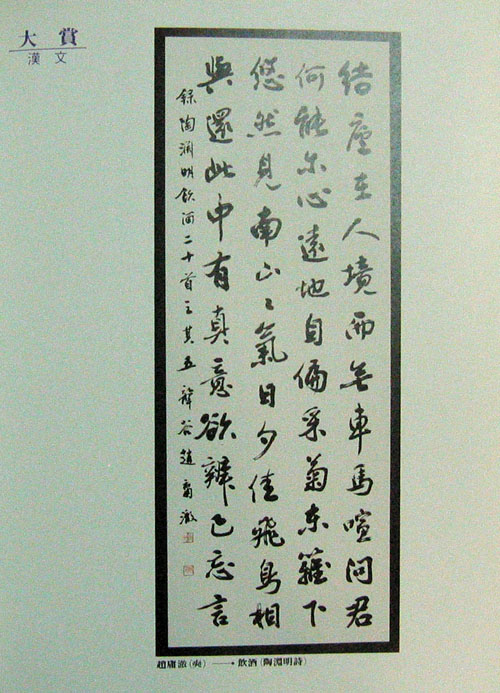 大賞
漢文
結廬在人境而無車馬喧問君
何能尔心遠地自偏采菊東籬下
悠然見南山々氣日夕佳飛鳥相
與還此中有真意欲辨已忘言
錄陶淵明飲酒二十首之其五 谷趙庸澈
趙庸澈 → 飲酒(陶淵明詩)